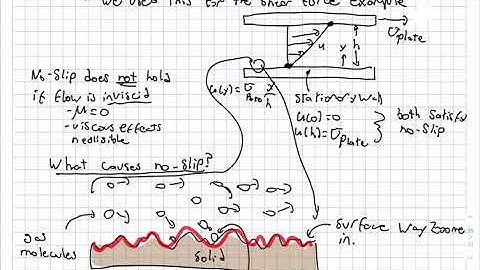 we used this for the shear force example
U plate
h
y
u
No-Slip does not hold
if flow is inviscid
- μ=0
- viscous effects
neglisible
u(y)=U plate y/h
Stationary Wall
u(0)=0
u(h)=U plate
both satisfy
no-slip
What causes no-slip?
gas
molecules
solid
Surface Way Zoomed
in.